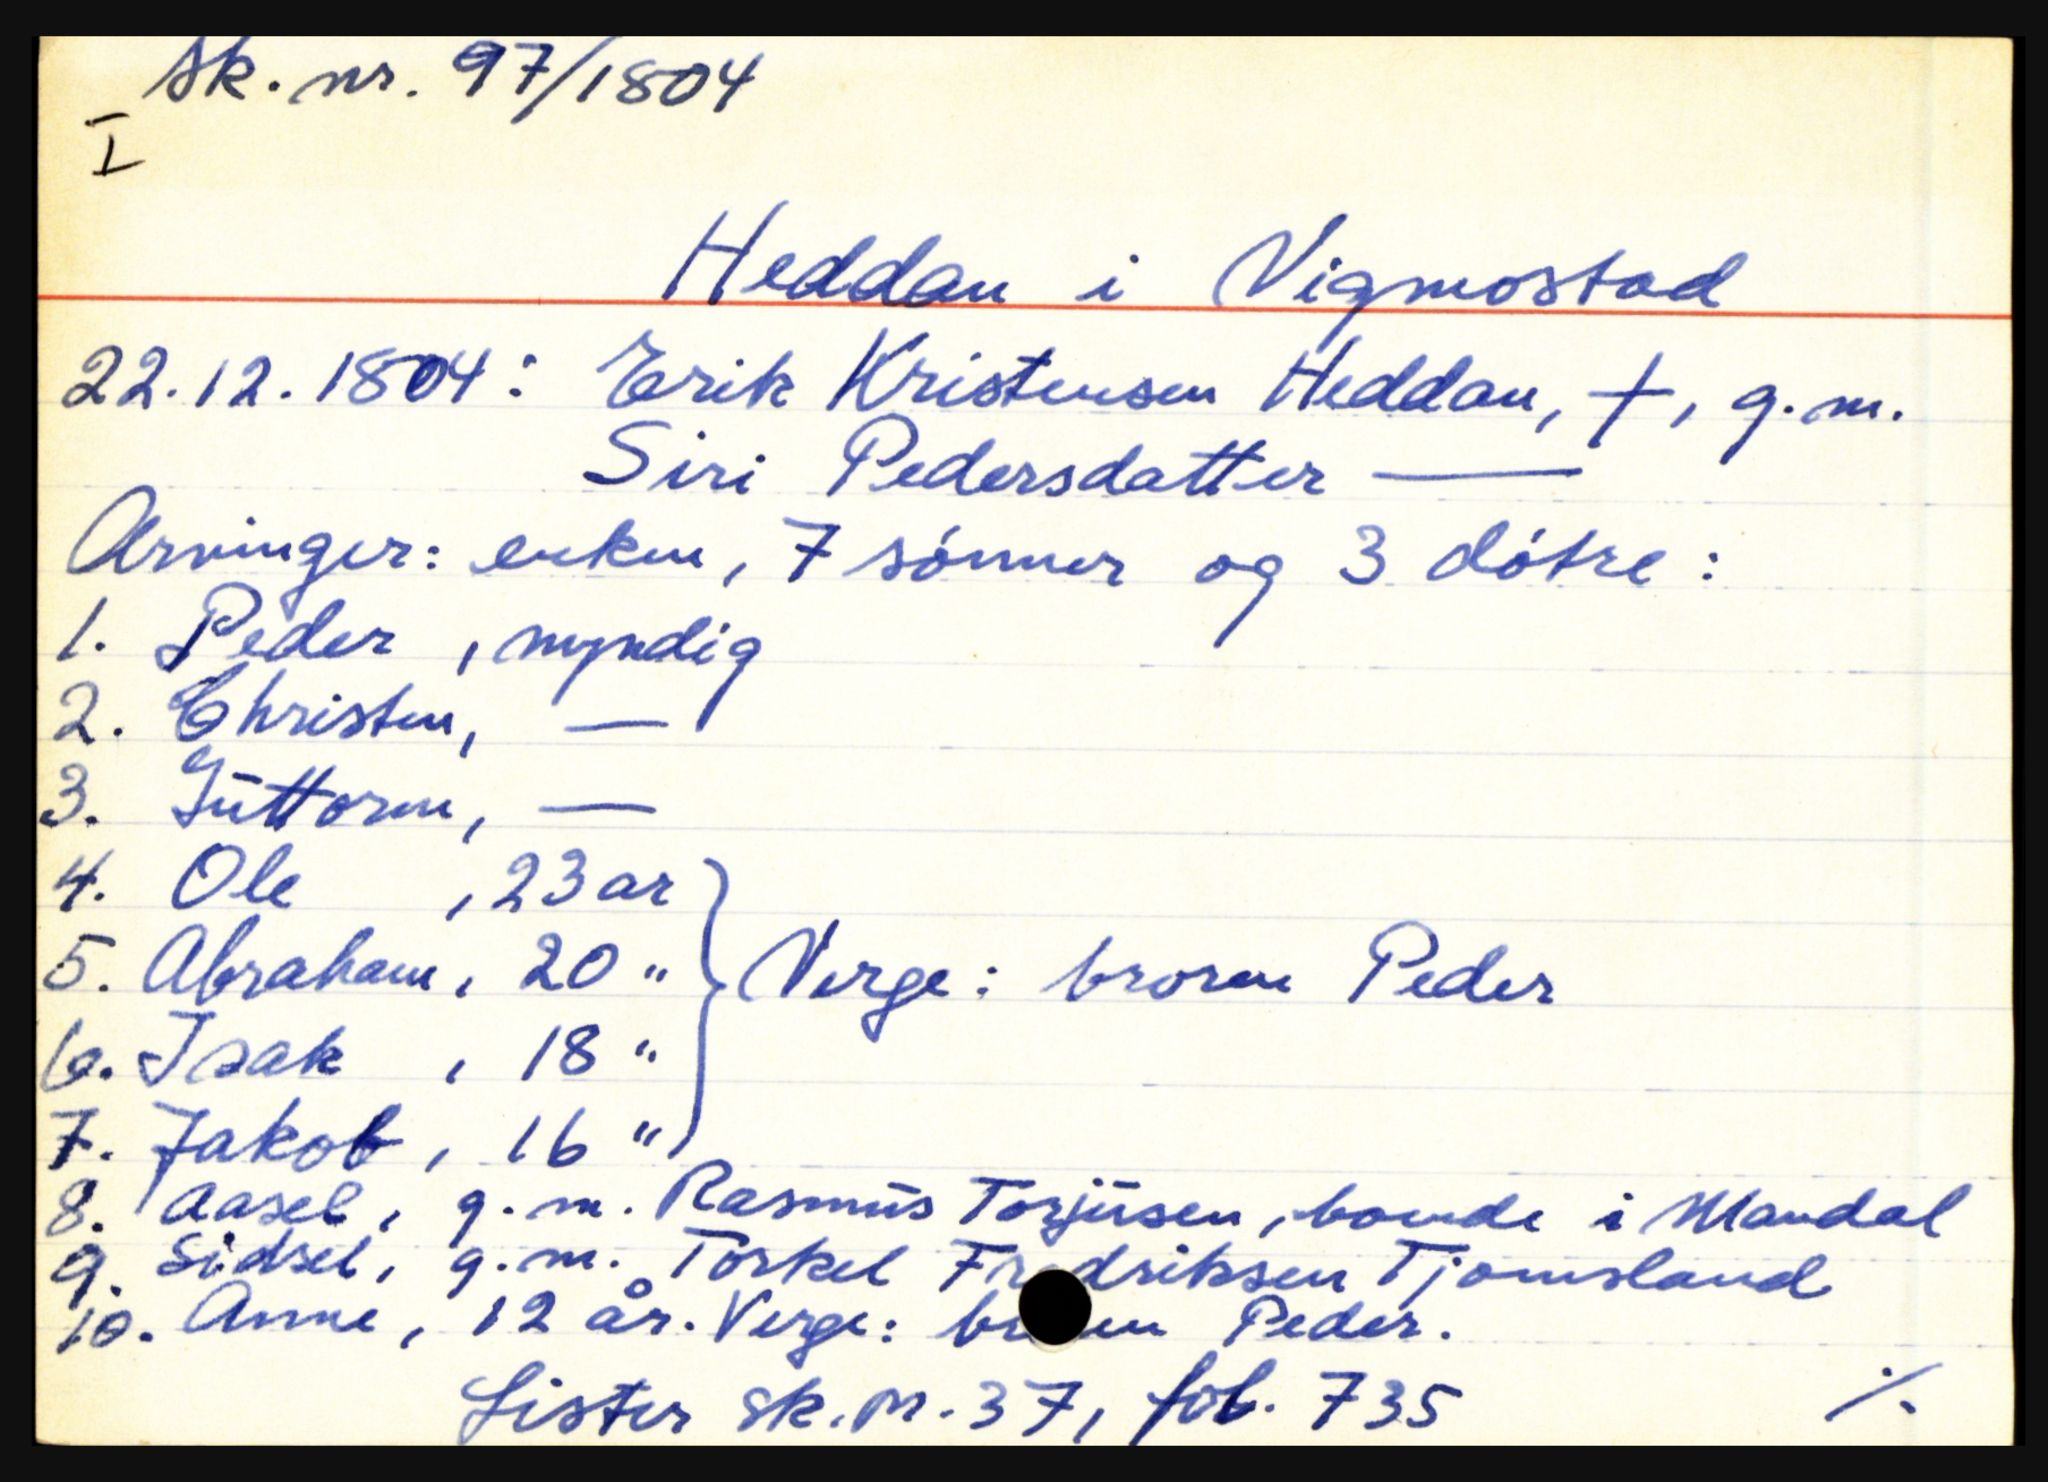 Sk. nr. 97/1804
I
Heddan i Vigmostad
22.12.1804: Erik Kristensen Heddan, †, g.m.
Siri Pedersdatter —
Arvinger: enken, 7 sónner og 3 dótre:
1. Peder , myndig
2. Christen, —
3. Guttorm, —
4. Ole , 23 ar
5. Abraham, 20 " } Verge: broren Peder
6. Isak , 18 "
7. Jakob, 16 "
8. Aasel, g.m. Rasmus Torjusen, boende i Mandal
9. Sidsel, g.m. Torkel Fredriksen Tjomsland
10. Anne, 12 år. Verge: broren Peder.
Lister sk. pr. 37, fol. 735
./.